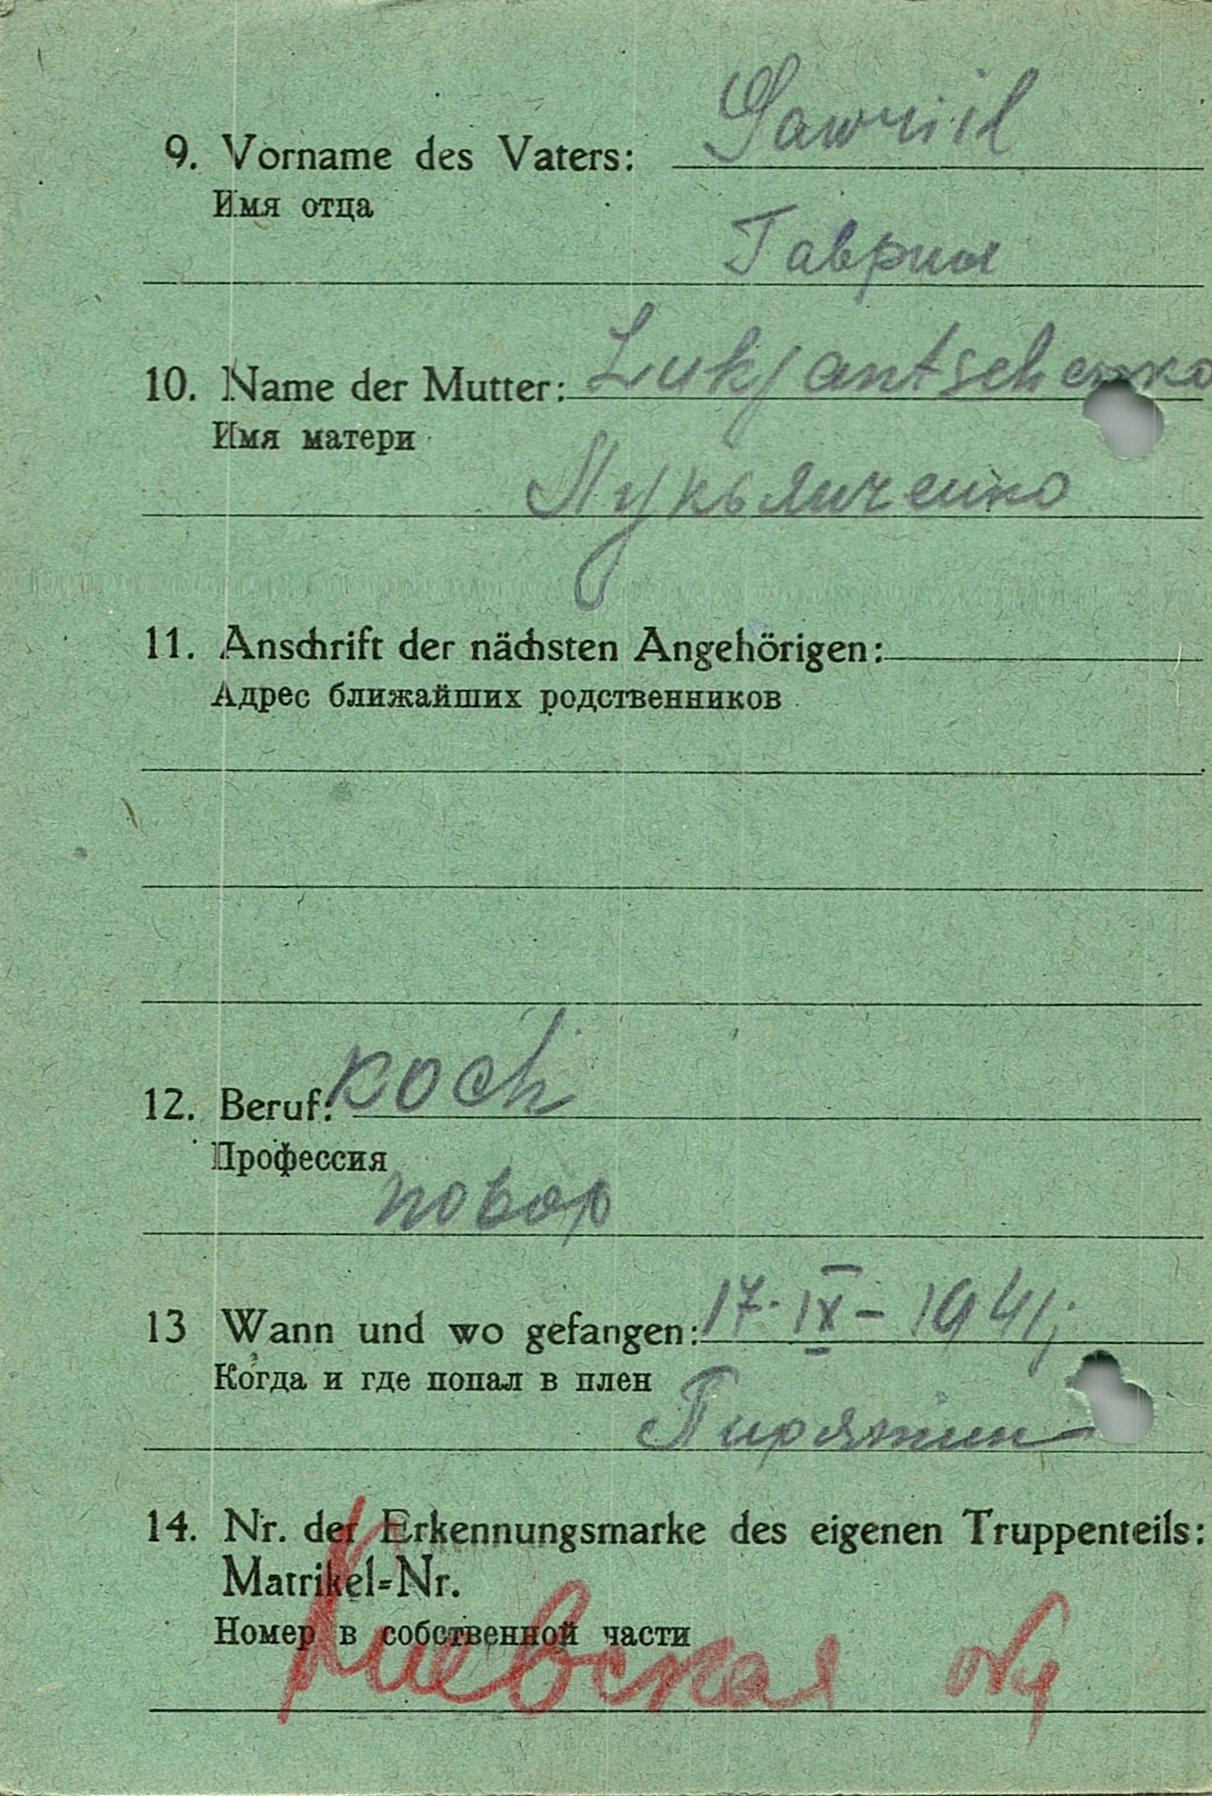 9. Vorname des Vaters: Gawriil
Имя отца
Гавриил
10. Name der Mutter: Lukjantschenko
Имя матери
Лукьянченко
11. Anschrift der nächsten Angehörigen:
Адрес ближайших родственников
12. Beruf: Koch
Профессия
повар
13 Wann und wo gefangen: 17·IX–1941;
Когда и где попал в плен
Пирятин
14. Nr. der Erkennungsmarke des eigenen Truppenteils:
Matrikel=Nr.
Номер в собственной части
Киевская